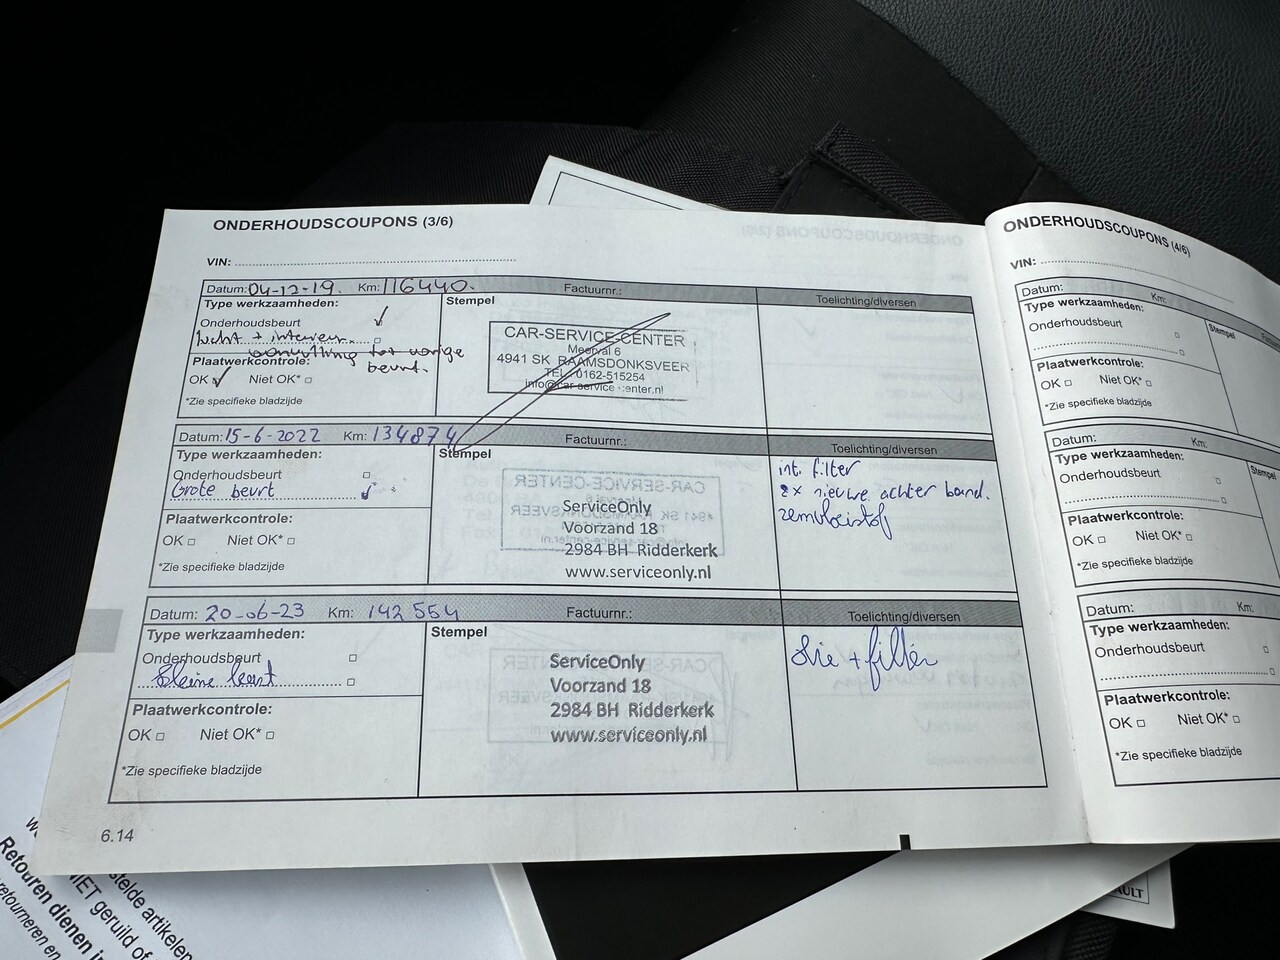 ONDERHOUDSCOUPONS (3/6)
VIN:
Datum: 04-12-19. Km: 116440. Factuurnr.: Toelichting/diversen
Type werkzaamheden:
Stempel
Onderhoudsbeurt ✓
lucht + interieur
aanvulling tot vorige
beurt.
Plaatwerkcontrole:
OK ✓ Niet OK* □
*Zie specifieke bladzijde
CAR-SERVICE-CENTER
Meerval 6
4941 SK RAAMSDONKSVEER
TEL.: 0162-515254
info@car-service-center.nl
Datum: 15-6-2022 Km: 134874 Factuurnr.: Toelichting/diversen
Type werkzaamheden:
Stempel
Onderhoudsbeurt □
Grote beurt ✓
Plaatwerkcontrole:
OK □ Niet OK* □
*Zie specifieke bladzijde
ServiceOnly
Voorzand 18
2984 BH Ridderkerk
www.serviceonly.nl
int. filter
2x nieuwe achter band.
remvloeistof
Datum: 20-06-23 Km: 142 554 Factuurnr.: Toelichting/diversen
Type werkzaamheden:
Stempel
Onderhoudsbeurt □
Kleine beurt □
Plaatwerkcontrole:
OK □ Niet OK* □
*Zie specifieke bladzijde
ServiceOnly
Voorzand 18
2984 BH Ridderkerk
www.serviceonly.nl
Olie + filter
6.14
ONDERHOUDSCOUPONS (4/6)
VIN:
Datum: Km:
Type werkzaamheden:
Stempel
Onderhoudsbeurt □
Plaatwerkcontrole:
OK □ Niet OK* □
*Zie specifieke bladzijde
Datum: Km:
Type werkzaamheden:
Onderhoudsbeurt □
Plaatwerkcontrole:
OK □ Niet OK* □
*Zie specifieke bladzijde
Datum: Km:
Type werkzaamheden:
Onderhoudsbeurt □
Plaatwerkcontrole:
OK □ Niet OK* □
*Zie specifieke bladzijde
stelde artikelen
NIET geruild of
Retouren dienen
retourneren en